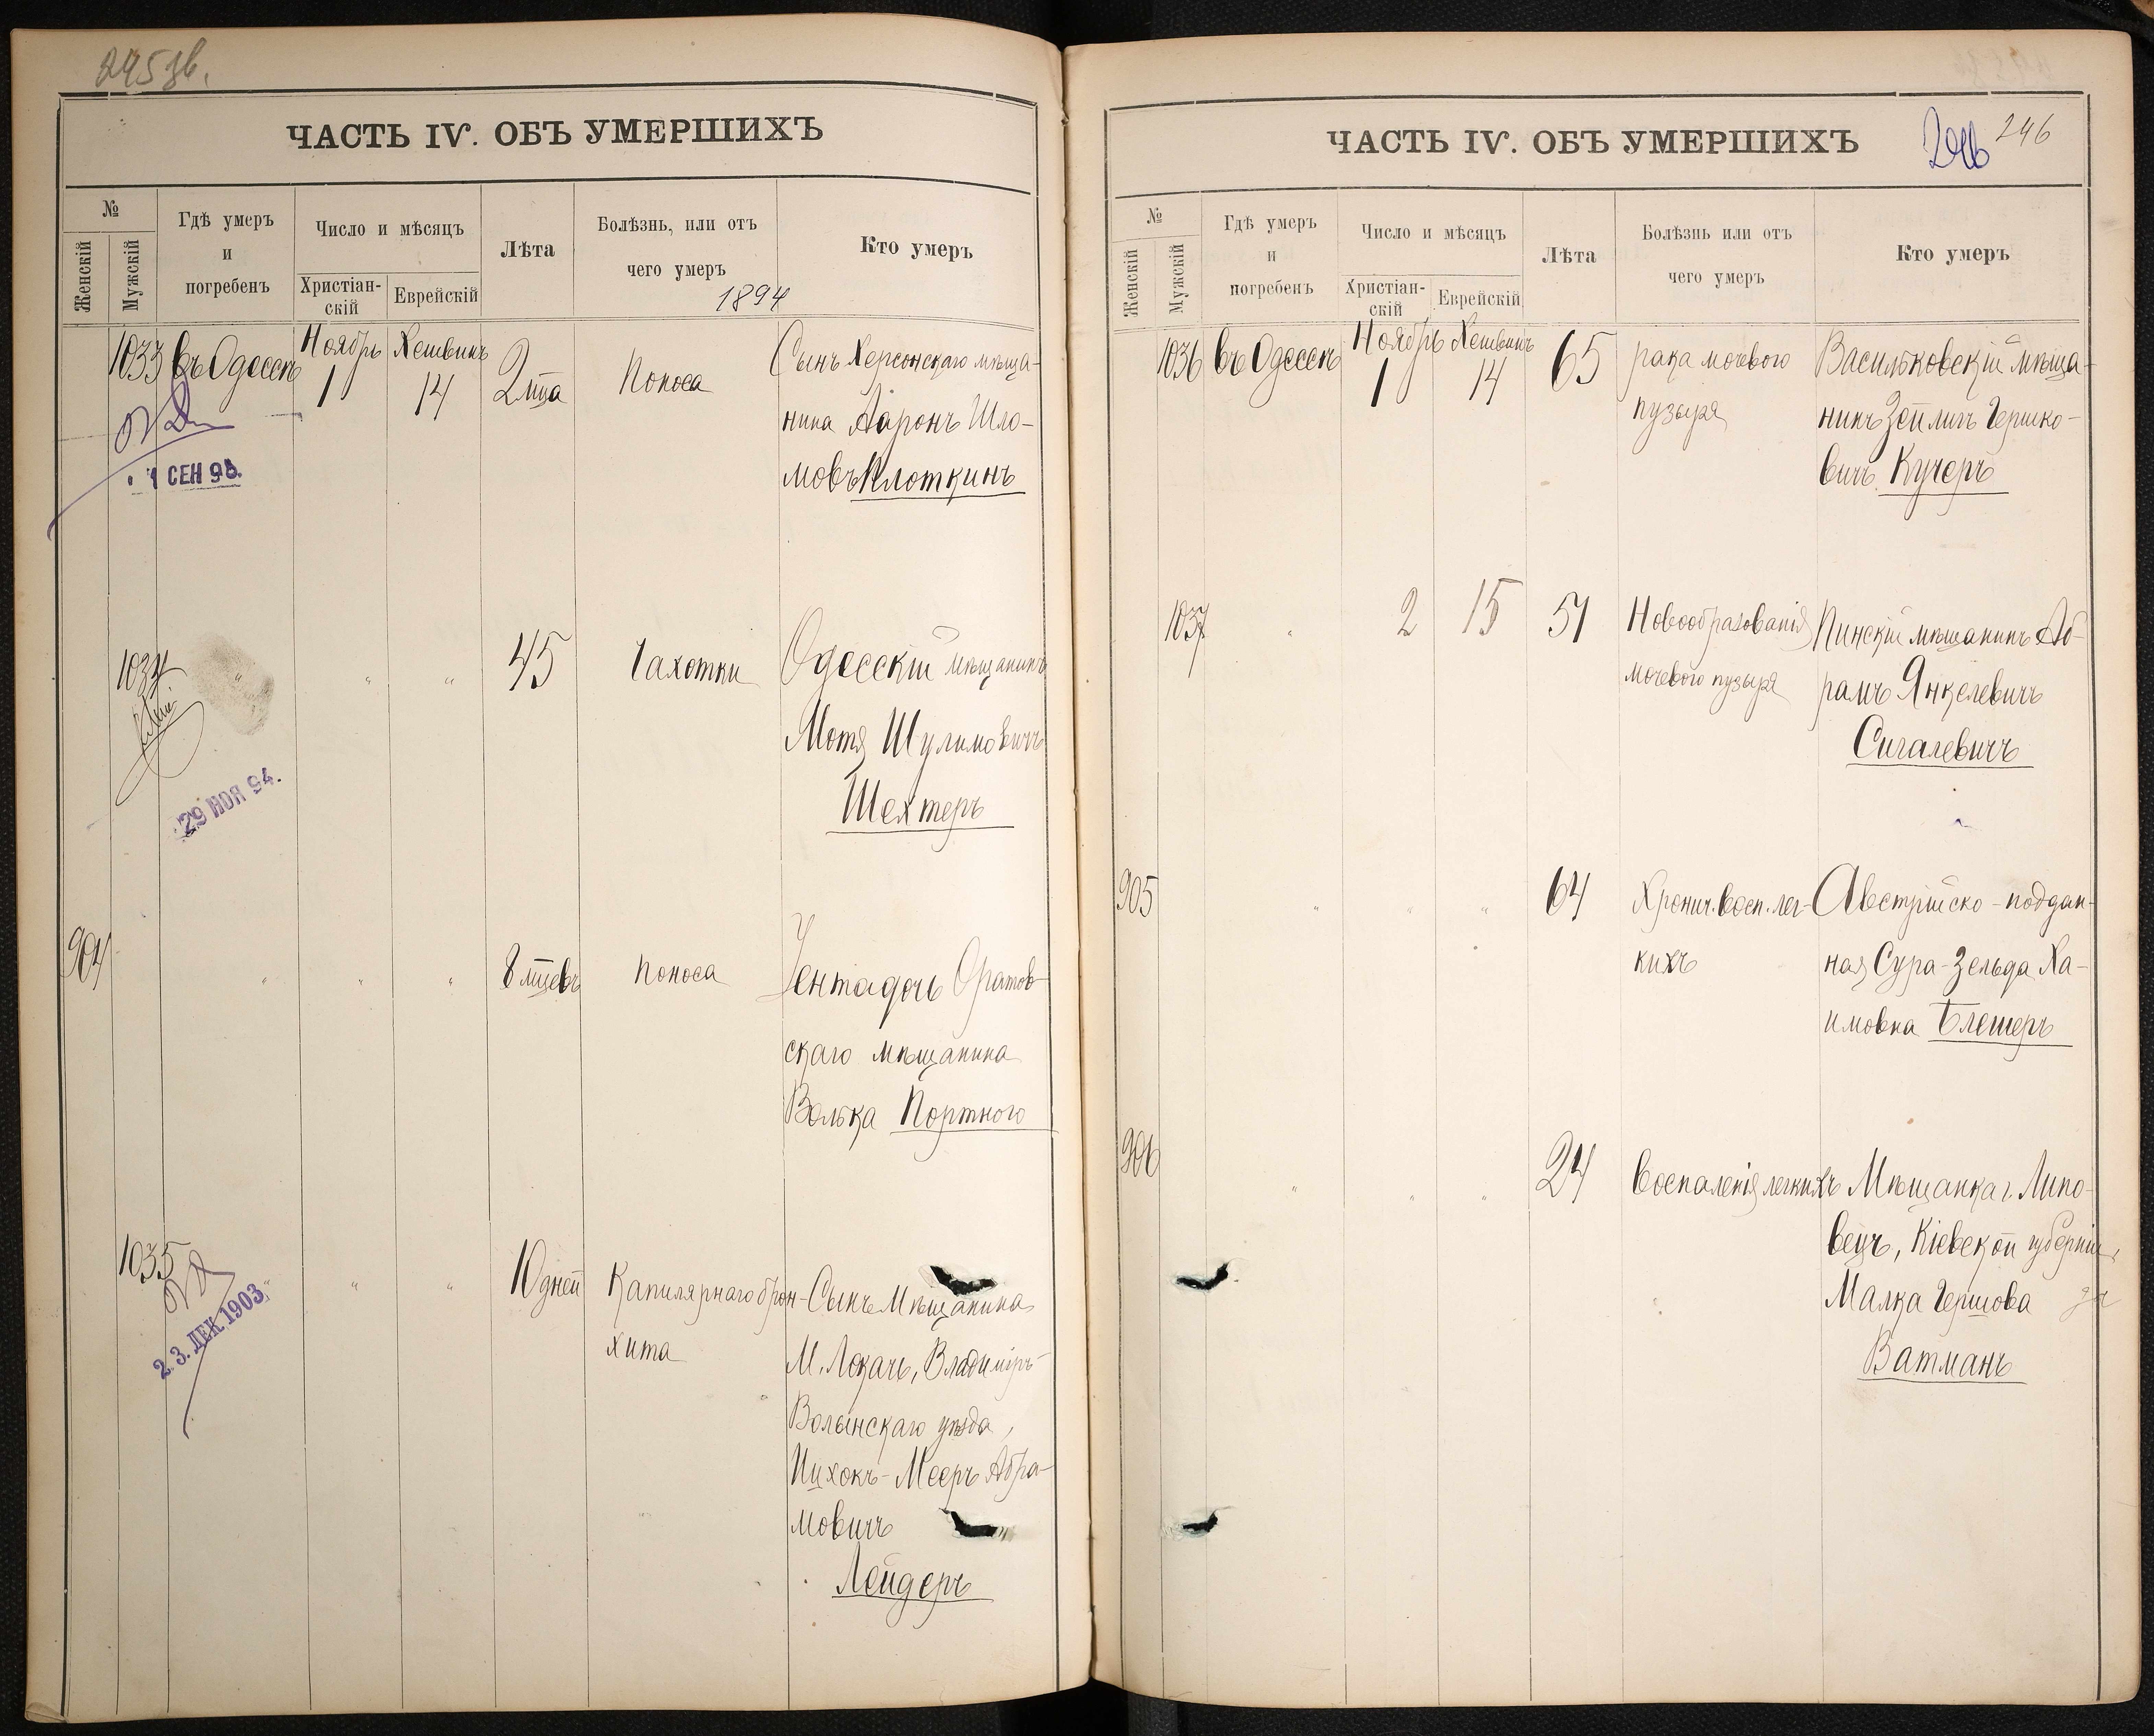 245 зв.
ЧАСТЬ IV. ОБЪ УМЕРШИХЪ
№
Женскій
Мужскій
Гдѣ умеръ
и
погребенъ
Число и мѣсяцъ
Христіан-
скій
Еврейскій
Лѣта
Болѣзнь, или отъ
чего умеръ
1894
Кто умеръ
1033
въ Одессѣ
Ноябрь
1
Хешвинъ
14
2 мца
Поноса
Сынъ Херсонскаго мѣща-
нина Ааронъ Шло-
мовъ Плоткинъ
1 СЕН 98.
1034
"
"
"
45
Чахотки
Одесскій мѣщанинъ
Мотя Шулимовичъ
Шехтеръ
29 НОЯ 94.
904
"
"
"
8 мцевъ
Поноса
Ента дочь Оратов-
скаго мѣщанина
Волька Портного
1035
"
"
"
10 дней
Капилярнаго брон-
хита
Сынъ Мѣщанина
М. Локачь, Владиміръ-
Волынскаго уѣзда,
Ицхокъ-Мееръ Абра-
мовичъ
Лейдеръ
23. ДЕК. 1903
ЧАСТЬ IV. ОБЪ УМЕРШИХЪ
246
246
№
Женскій
Мужскій
Гдѣ умеръ
и
погребенъ
Число и мѣсяцъ
Христіан-
скій
Еврейскій
Лѣта
Болѣзнь или отъ
чего умеръ
Кто умеръ
1036
въ Одессѣ
Ноябрь
1
Хешвинъ
14
65
рака мочевого
пузыря
Васильковскій мѣща-
нинъ Зейлигъ Гершко-
вичъ Кучеръ
1037
"
2
15
51
Новообразованія
мочевого пузыря
Пинскій мѣщанинъ Аб-
рамъ Янкелевичъ
Сигалевичъ
905
"
"
"
64
Хронич. восп. лег-
кихъ
Австрійско-поддан-
ная Сура-Зельда Ха-
имовна Блешеръ
906
"
"
"
24
Воспаленія легкихъ
Мѣщанка г. Липо-
вецъ, Кіевской губерніи,
Малка Гершова
Ватманъ